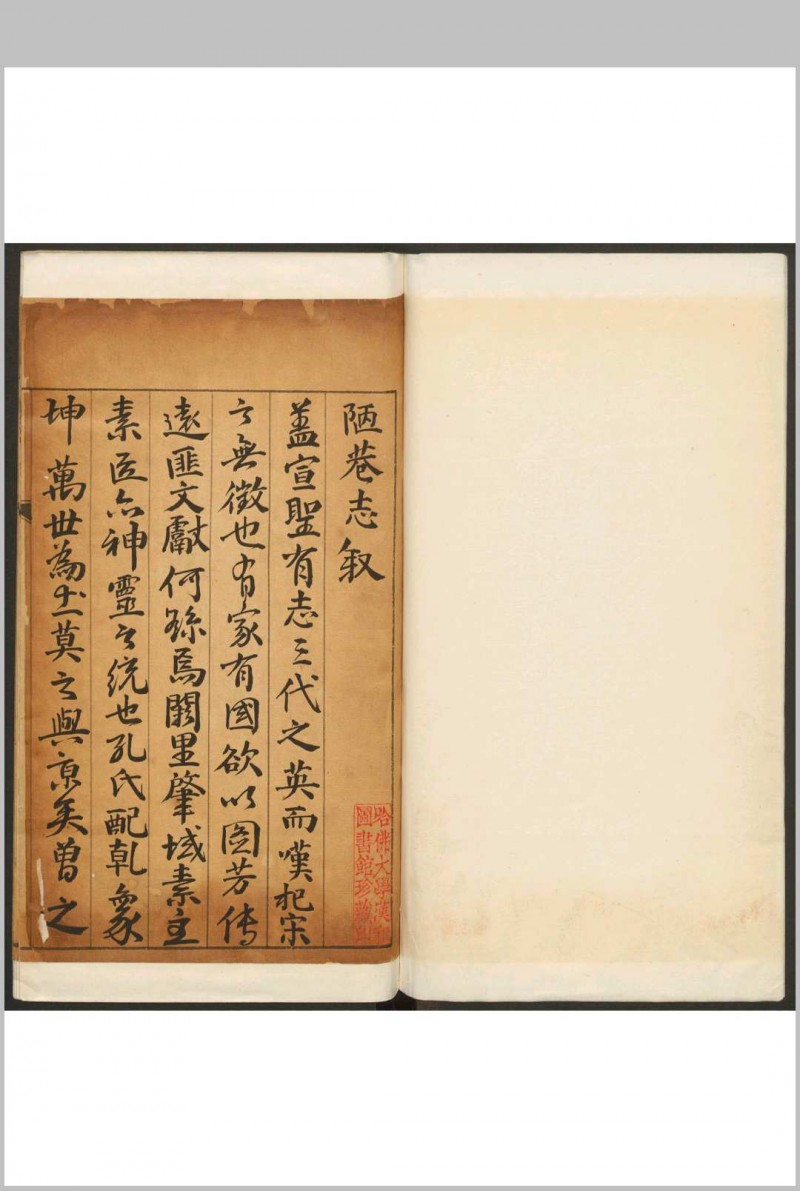 陋巷志叙
蓋宣聖有志三代之英而嘆杞宋
之無徵也有家有國欲以圖芳传
遠匪文獻何繇焉闕里肇域素王
素臣亦神靈之統也孔氏配乾象
坤萬世為土莫之與京矣曾之
哈佛大學漢和
圖書館珍藏印